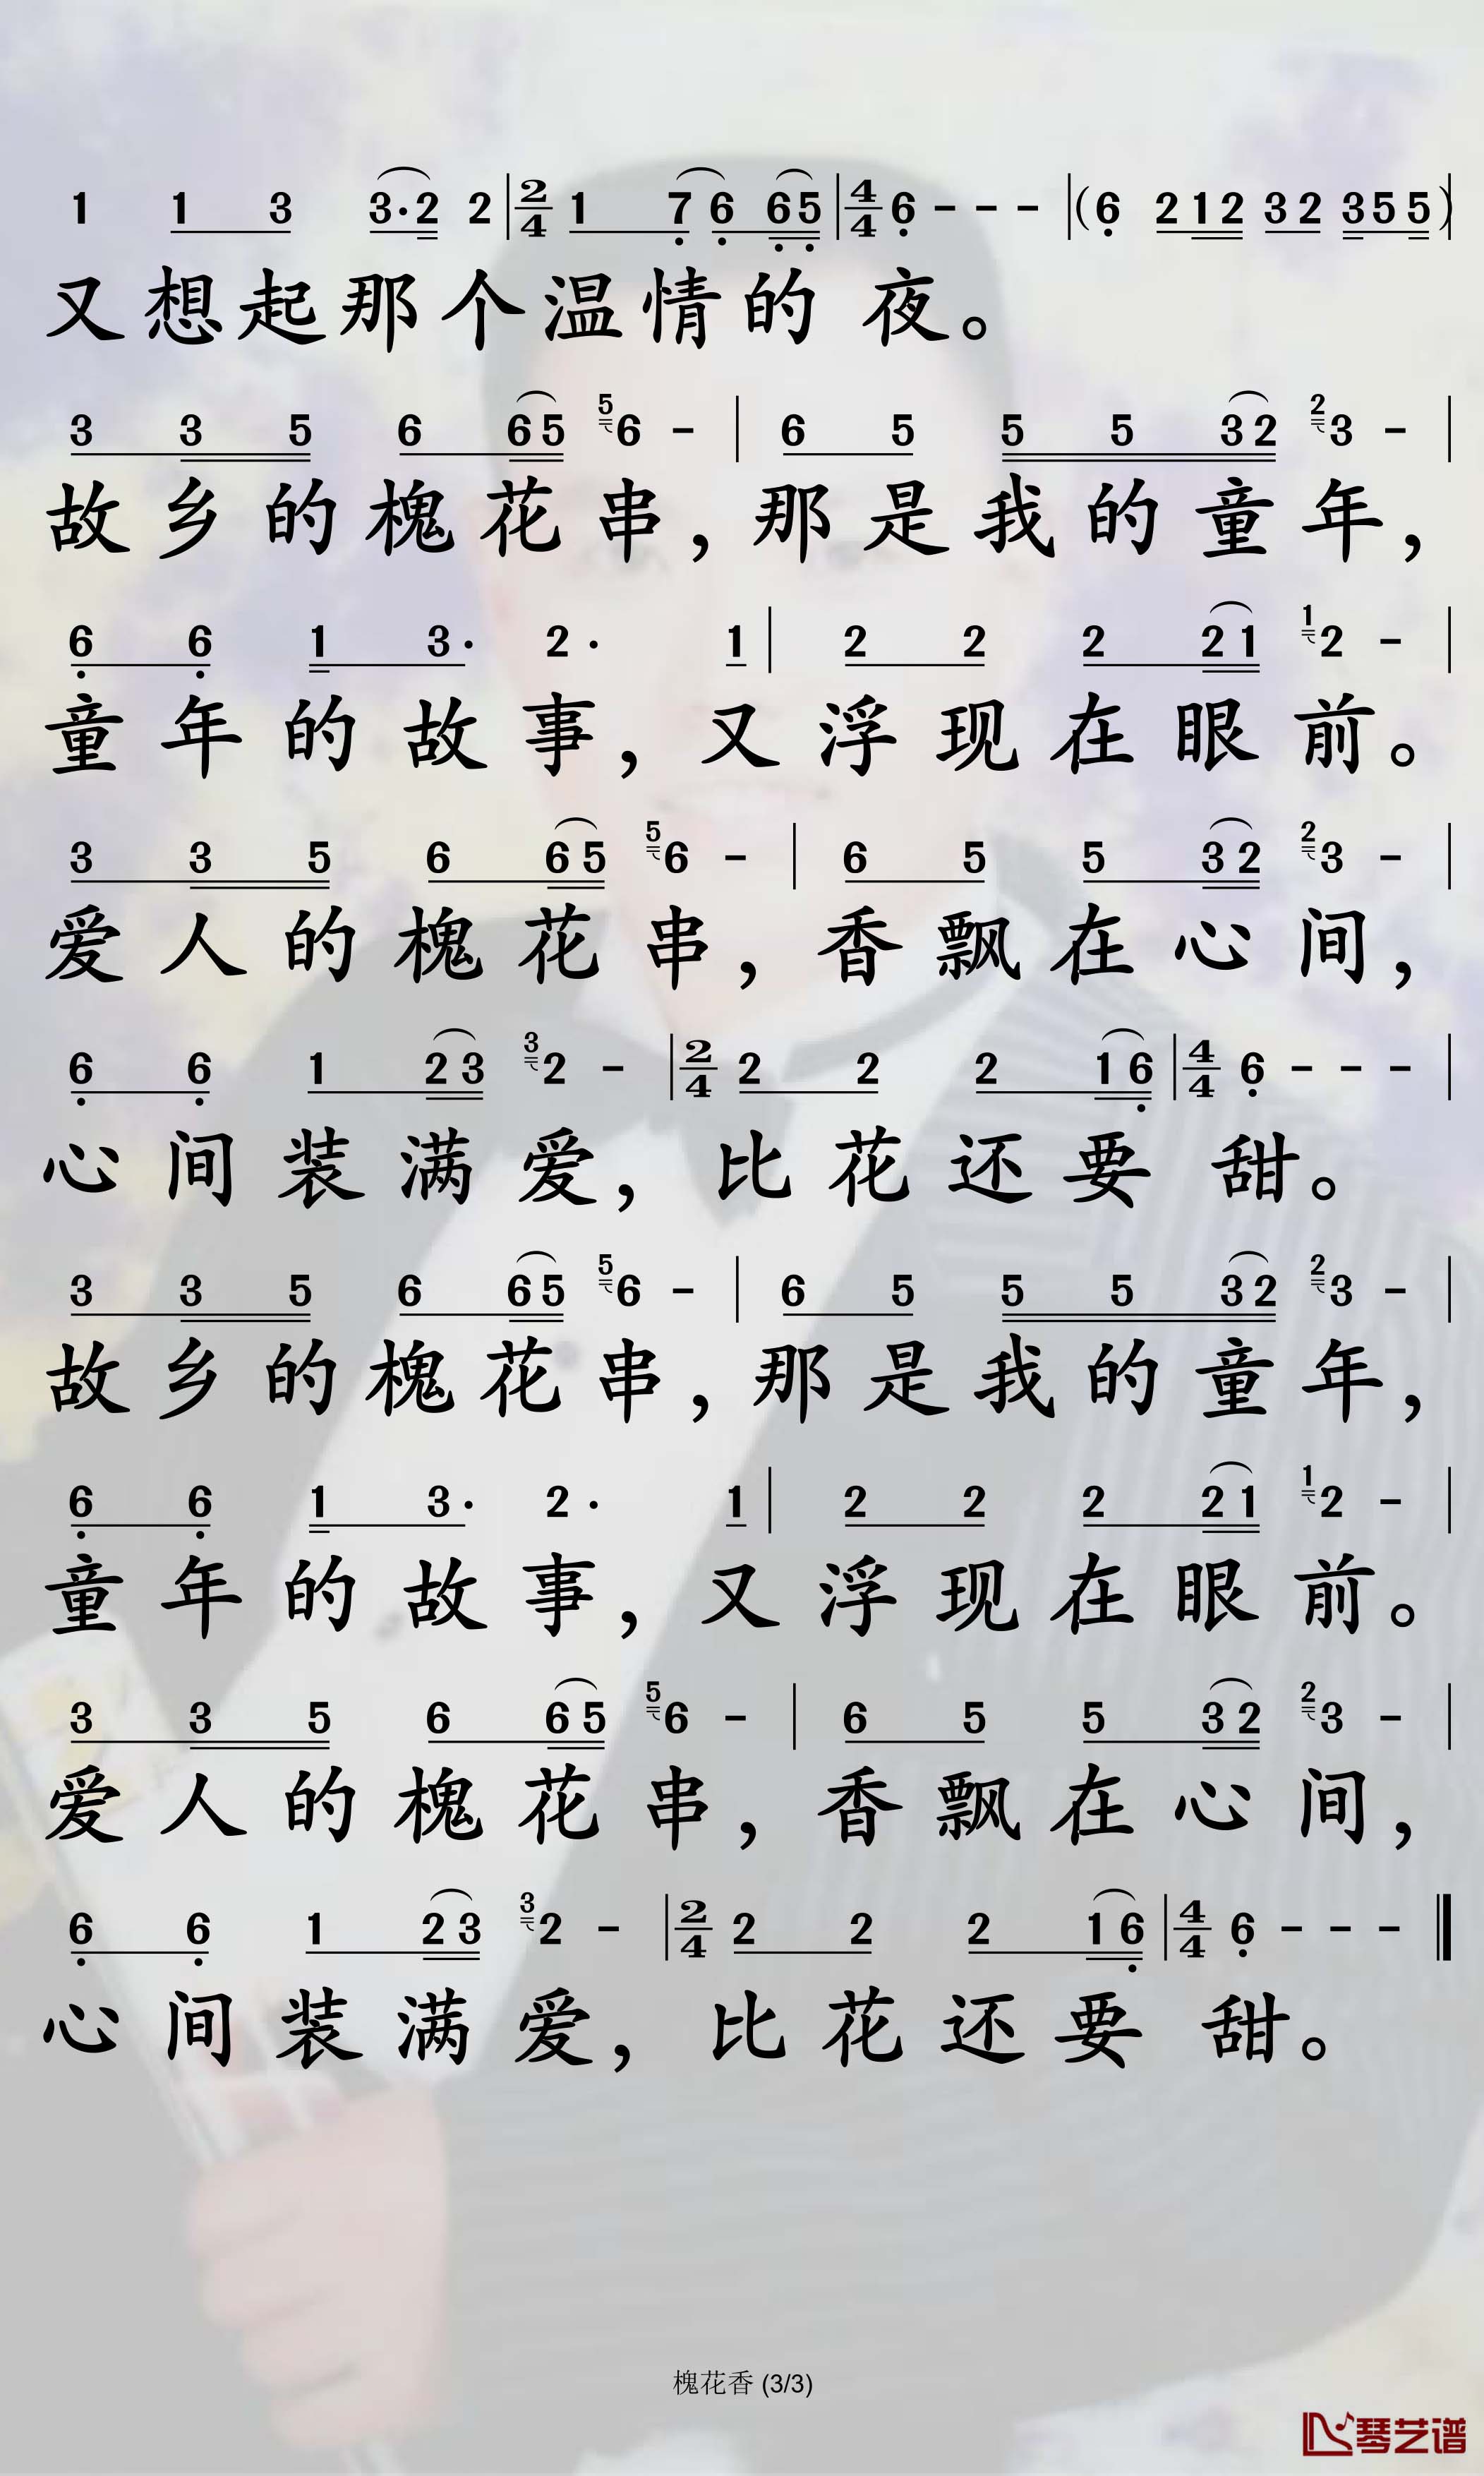 1 1 3 3·2 2 | 2/4 1 7 6 6 5 | 4/4 6 - - - | (6 2 1 2 3 2 3 5 5) |
又想起那个温情的 夜。
3 3 5 6 6 5 5 6 - | 6 5 5 5 3 2 2 3 - |
故乡的槐花串，那是我的童年，
6 6 1 3· 2· 1 | 2 2 2 2 1 1 2 - |
童年的故事，又浮现在眼前。
3 3 5 6 6 5 5 6 - | 6 5 5 3 2 2 3 - |
爱人的槐花串，香飘在心间，
6 6 1 2 3 3 2 - | 2/4 2 2 2 1 6 | 4/4 6 - - - |
心间装满爱，比花还要 甜。
3 3 5 6 6 5 5 6 - | 6 5 5 5 3 2 2 3 - |
故乡的槐花串，那是我的童年，
6 6 1 3· 2· 1 | 2 2 2 2 1 1 2 - |
童年的故事，又浮现在眼前。
3 3 5 6 6 5 5 6 - | 6 5 5 3 2 2 3 - |
爱人的槐花串，香飘在心间，
6 6 1 2 3 3 2 - | 2/4 2 2 2 1 6 | 4/4 6 - - - ‖
心间装满爱，比花还要 甜。
槐花香 (3/3)
琴艺谱